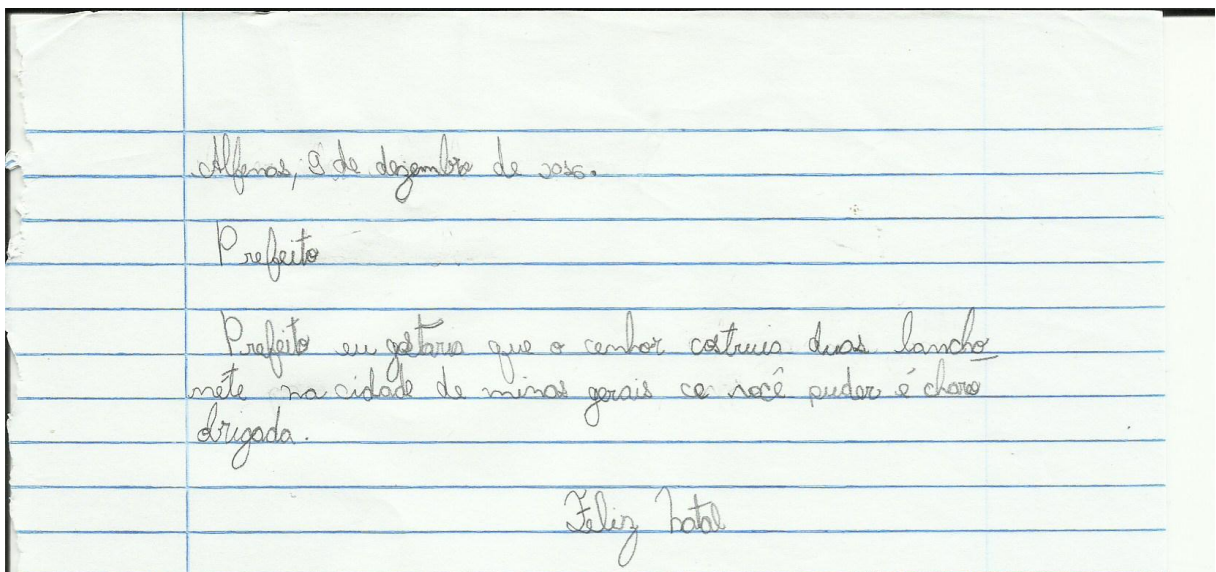 Alfenas, 9 de dezembro de 2016.
Prefeito
Prefeito eu gostaria que o cenhor costruia duas lancho
nete na cidade de minas gerais ce você puder é charo
obrigada.
Feliz Natal